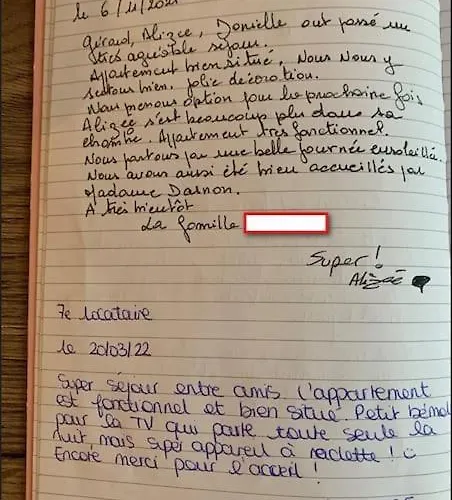 le 6/11/2021
Gérard, Alizée, Danielle ont passé un
très agréable séjour.
Appartement bien situé. Nous Nous y
sentons bien. Jolie décoration.
Nous prenons option pour la prochaine fois
Alizée s'est beaucoup plu dans sa
chambre. Appartement très fonctionnel.
Nous partons par une belle journée ensoleillée.
Nous avons aussi été bien accueillés par
Madame Dasnon.
A très bientôt
La famille
Super!
Alizée
7e locataire
le 20/03/22
Super séjour entre amis. L'appartement
est fonctionnel et bien situé. Petit bémol
pour la TV qui parle toute seule la
nuit, mais super appareil à raclette !
Encore merci pour l'accueil !